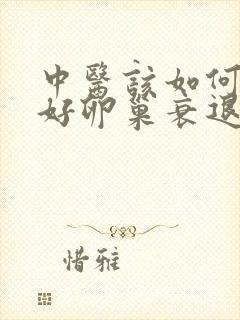 中醫該如何
好卵巢衰退
惜雅